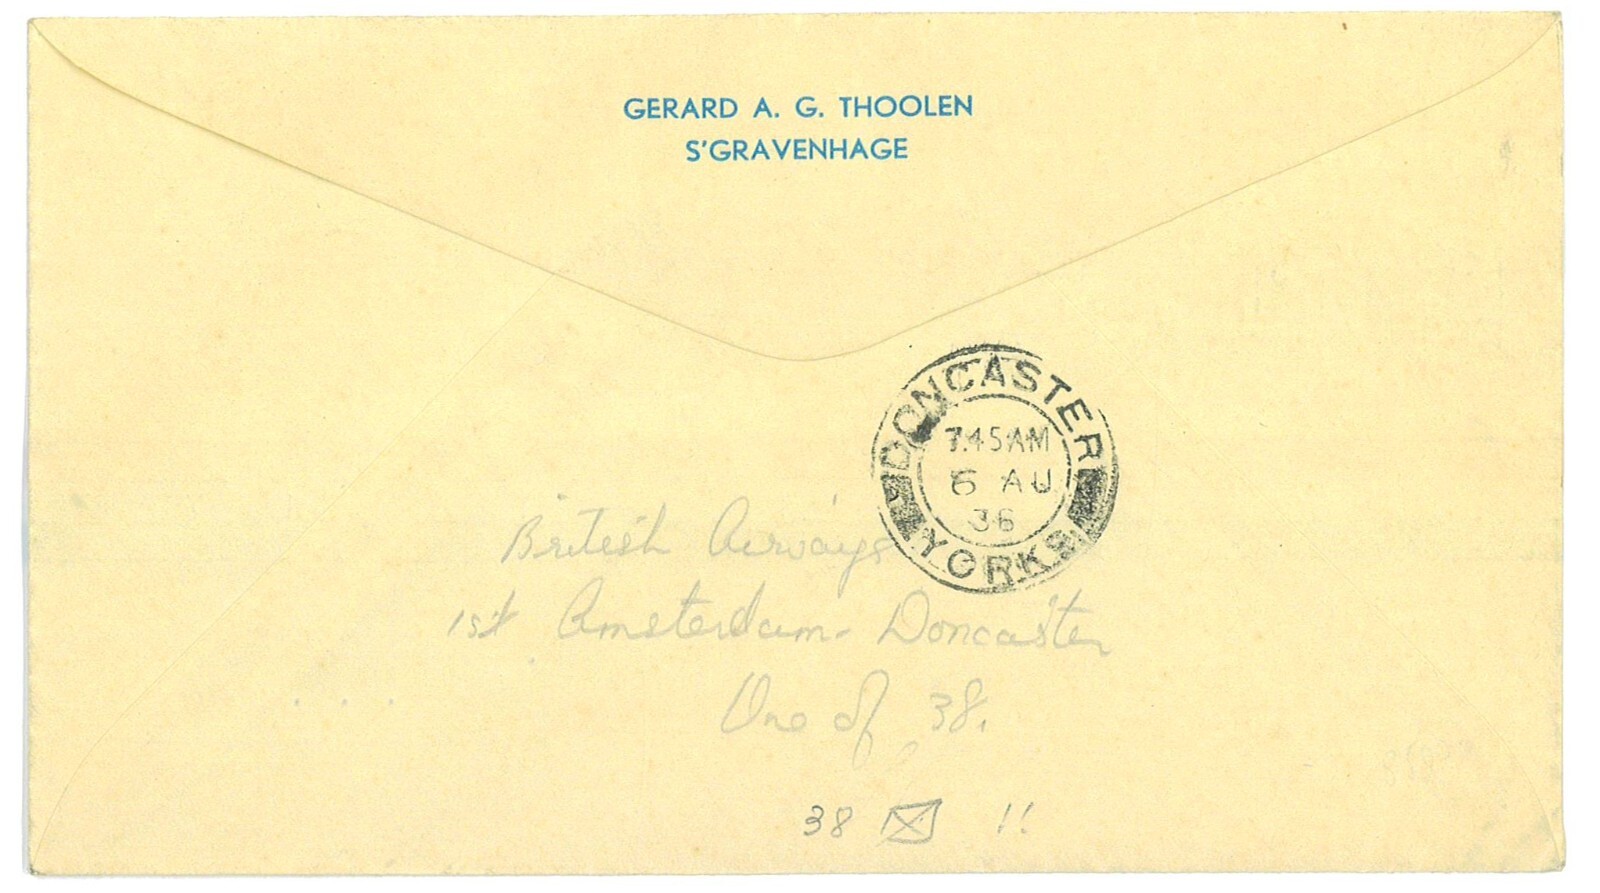 GERARD A. G. THOOLEN
S'GRAVENHAGE
DONCASTER
7.45 AM
6 AU
36
YORKS
British Airways
1st Amsterdam - Doncaster
One of 38.
38 !!